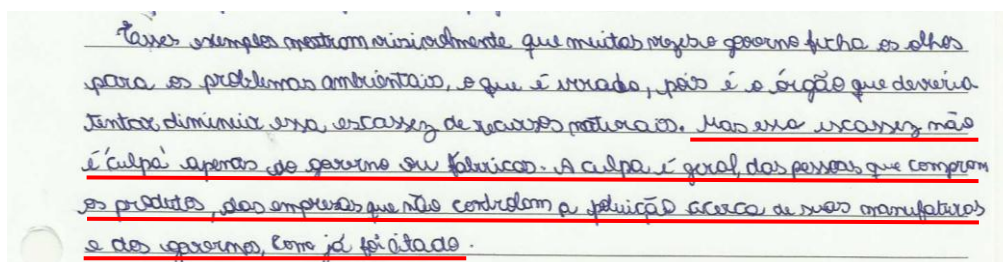 Esses exemplos mostram visivelmente que muitas vezes o governo fecha os olhos
para os problemas ambientais, o que é errado, pois é o órgão que deveria
tentar diminuir essa, escassez de recursos naturais. Mas essa escassez não
é 'culpa' apenas do governo ou fábricas. A culpa é geral, das pessoas que compram
os produtos, das empresas que não controlam a poluição acerca de suas manufaturas
e dos governos, como já foi citado.